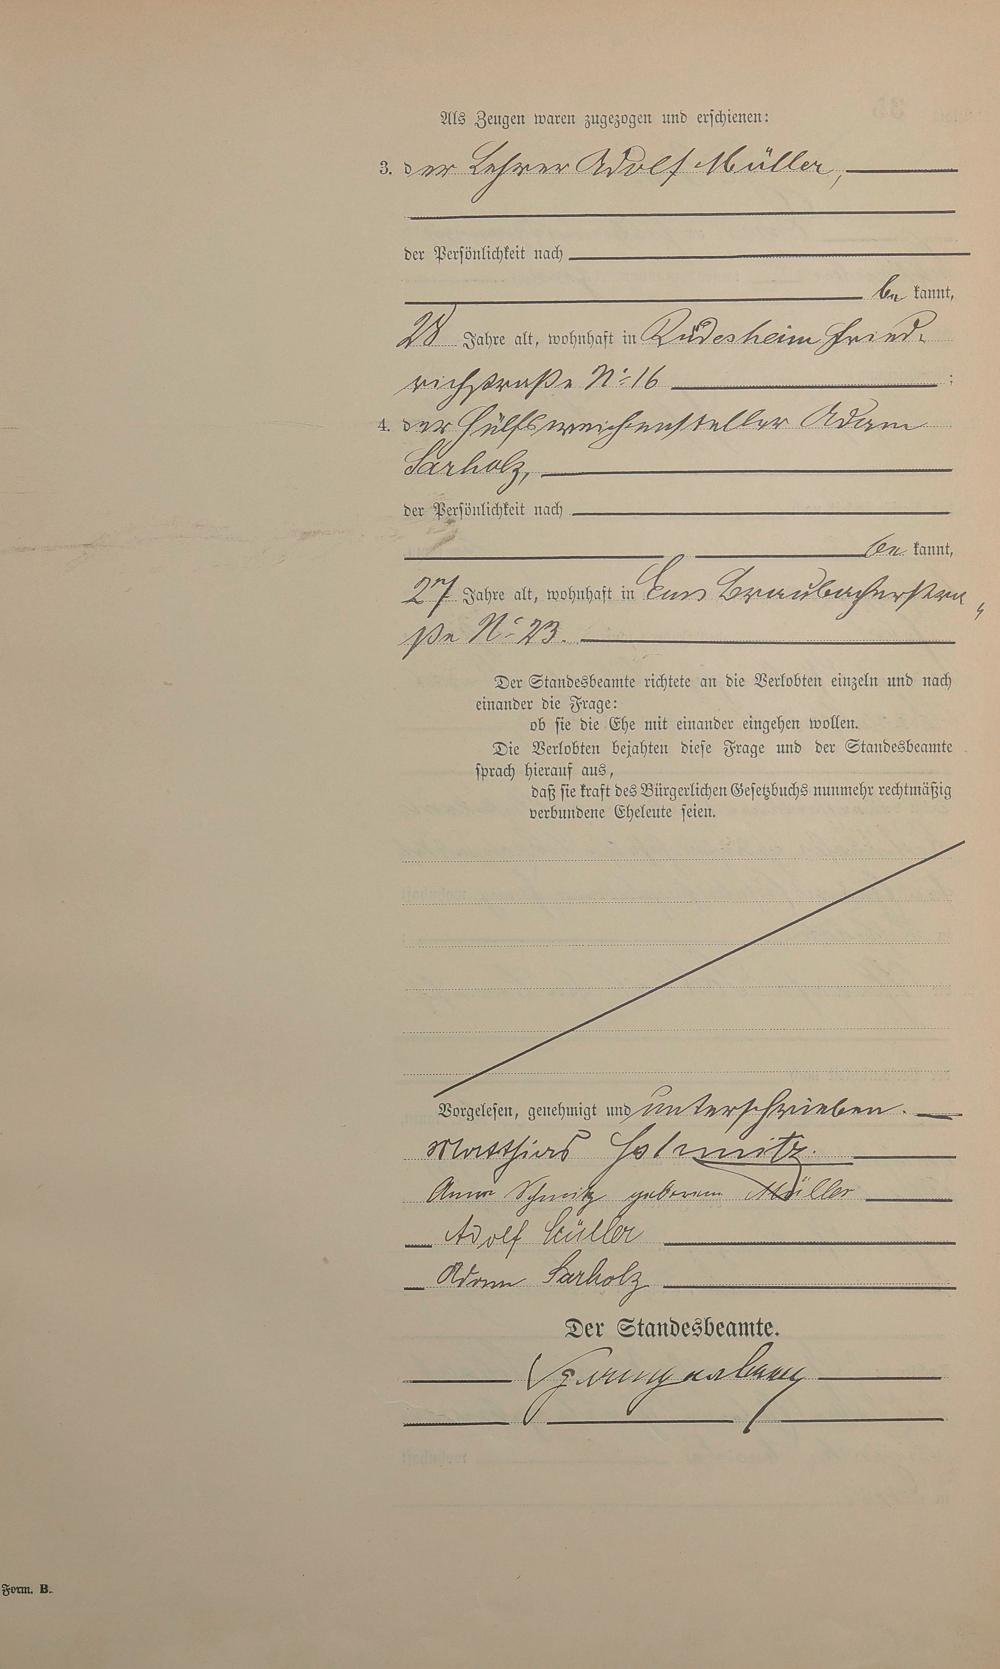 Als Zeugen waren zugezogen und erschienen:
3. der Lehrer Adolf Müller,
der Persönlichkeit nach
be kannt,
28 Jahre alt, wohnhaft in Rüdesheim Fried-
richstraße No 16 ;
4. der Hülfsweichensteller Adam
Sarholz,
der Persönlichkeit nach
be kannt,
27 Jahre alt, wohnhaft in Ems Braubacherstra
ße No 23.
Der Standesbeamte richtete an die Verlobten einzeln und nach
einander die Frage:
ob sie die Ehe mit einander eingehen wollen.
Die Verlobten bejahten diese Frage und der Standesbeamte
sprach hierauf aus,
daß sie kraft des Bürgerlichen Gesetzbuchs nunmehr rechtmäßig
verbundene Eheleute seien.
Vorgelesen, genehmigt und unterschrieben.
Matthias Schmitz.
Anna Schmitz geborene Müller
Adolf Müller
Adam Sarholz
Der Standesbeamte.
Form. B.